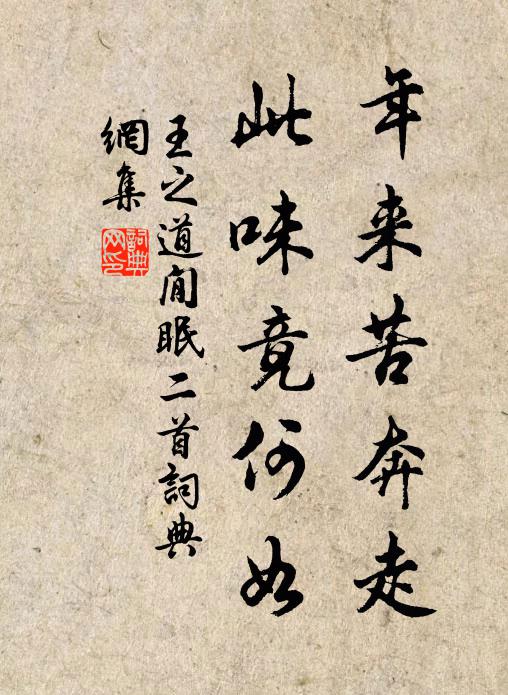 年来苦奔走
此味竟何如
王之道闲眠二首詞典
網集
詞典
网印